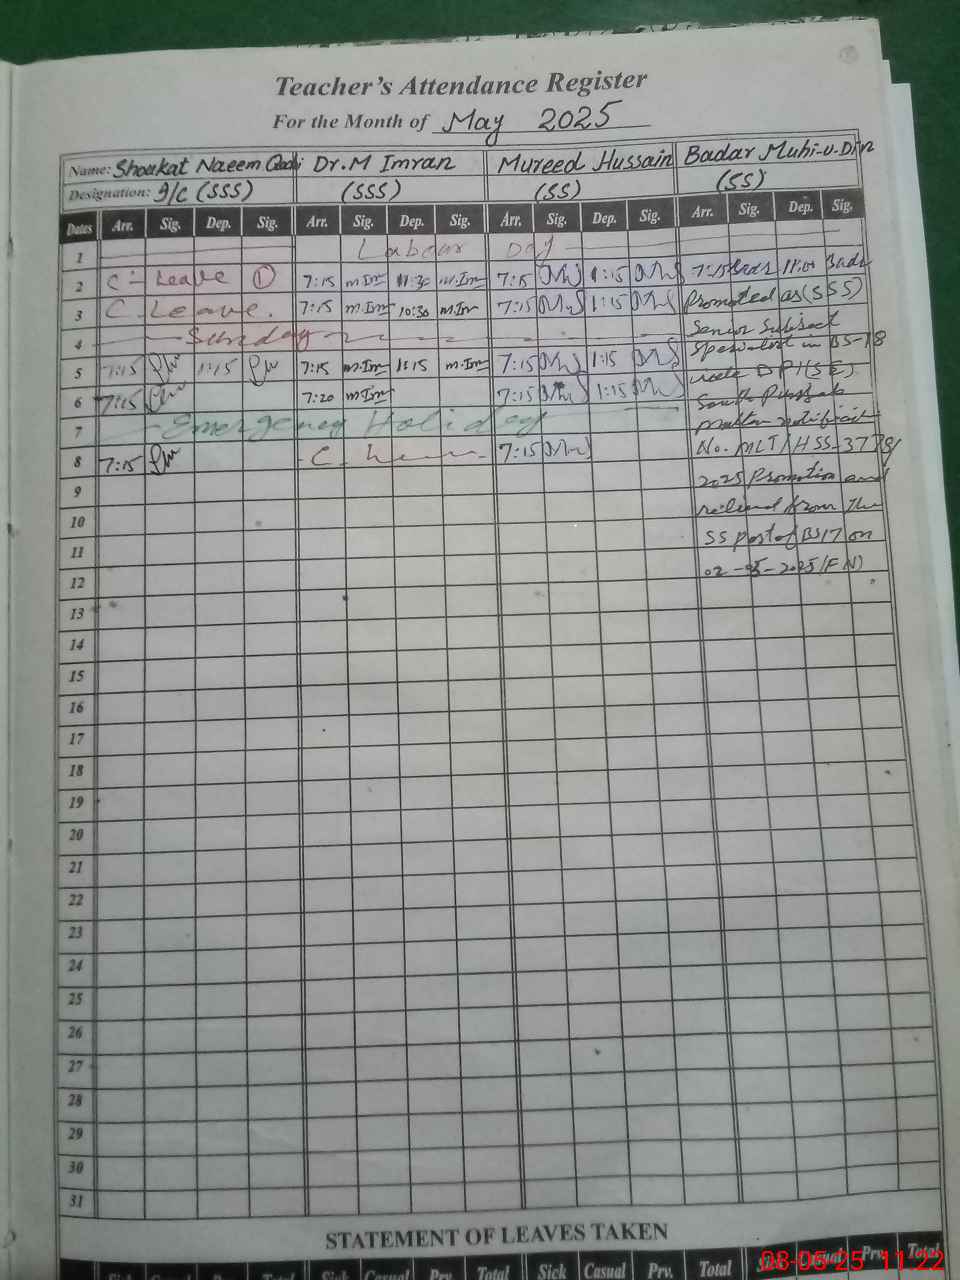 Teacher's Attendance Register
For the Month of May 2025
Name: Shoukat Naeem Qadri Dr. M Imran Mureed Hussain Badar Muhi-u-Din
Designation: I/C (SSS) (SSS) (SS) (SS)
Dates Arr. Sig. Dep. Sig. Arr. Sig. Dep. Sig. Arr. Sig. Dep. Sig. Arr. Sig. Dep. Sig.
1 Labour Day
2 C-Leave 1 7:15 m.Im 11:30 m.Im 7:15 1:15 7:15 Badr 11:01 Badr
3 C. Leave. 7:15 m.Im 10:30 m.Im 7:15 1:15 Promoted as (SSS)
4 Sunday Senior Subject
5 7:15 1:15 7:15 m.Im 1:15 m.Im 7:15 1:15 Specialist in BS-18
6 7:15 7:20 m.Im 7:15 1:15 vide DPI(SE)
South Punjab
7 Emergency Holiday Multan notification
8 7:15 C. 7:15 No. MLT/HSS-3778/
9 2025 Promotion and
10 relieved from the
11 SS post of BS17 on
12 02-05-2025 (F.N)
13
14
15
16
17
18
19
20
21
22
23
24
25
26
27
28
29
30
31
STATEMENT OF LEAVES TAKEN
Sick Casual Prv. Total Sick Casual Prv. Total Sick Casual Prv. Total Sick Casual Prv. Total
08-05-25 11:22